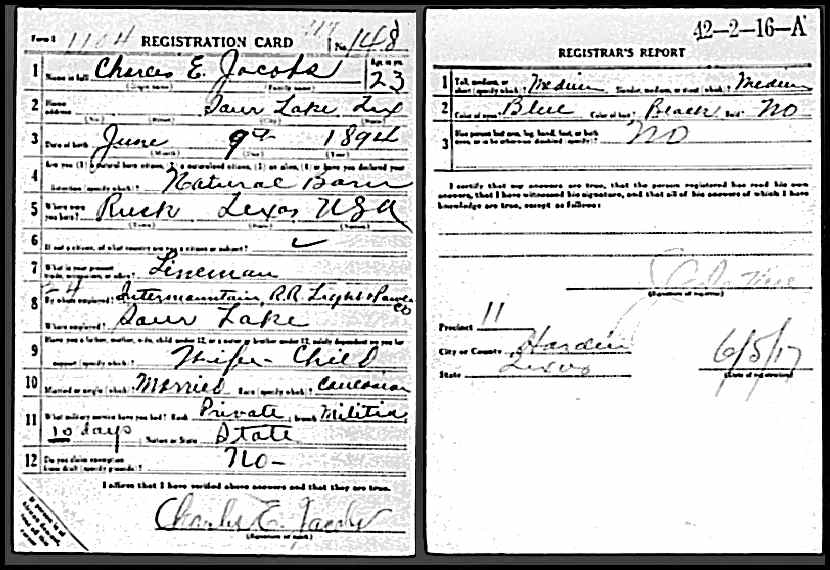 Form 1 1104 REGISTRATION CARD No. 148
1 Name in full Charles E. Jacobs Age in yrs. 23
(Given name) (Family name)
2 Home address Sour Lake Tex
(No.) (Street) (City) (State)
3 Date of birth June 9th 1894
(Month) (Day) (Year)
4 Are you (1) a natural born citizen, (2) a naturalized citizen, (3) an alien, (4) or have you declared your
intention (specify which)? Natural Born
5 Where were you born? Rusk Texas USA
(Town) (State) (Nation)
6 If not a citizen, of what country are you a citizen or subject?
7 What is your present trade, occupation, or office? Lineman
8 By whom employed? Intermountain, R.R. Light & Power Co
Where employed? Sour Lake
9 Have you a father, mother, wife, child under 12, or a sister or brother under 12, solely dependent on you for
support (specify which)? Wife - Child
10 Married or single (which)? Married Race (specify which)? Caucasian
11 What military service have you had? Rank Private branch Militia
10 days Nation or State State
12 Do you claim exemption from draft (specify grounds)? No-
I affirm that I have verified above answers and that they are true.
Charles E. Jacobs
(Signature or mark)
42-2-16-A
REGISTRAR'S REPORT
1 Tall, medium, or short (specify which)? Medium Slender, medium, or stout (which)? Medium
2 Color of eyes? Blue Color of hair? Black Bald? No
3 Has person lost arm, leg, hand, foot, or both eyes, or is he otherwise disabled (specify)? No
I certify that my answers are true, that the person registered has read his own
answers, that I have witnessed his signature, and that all of his answers of which I have
knowledge are true, except as follows:
(Signature of registrar)
Precinct 11
City or County Hardin
State Texas
6/5/17
(Date of registration)